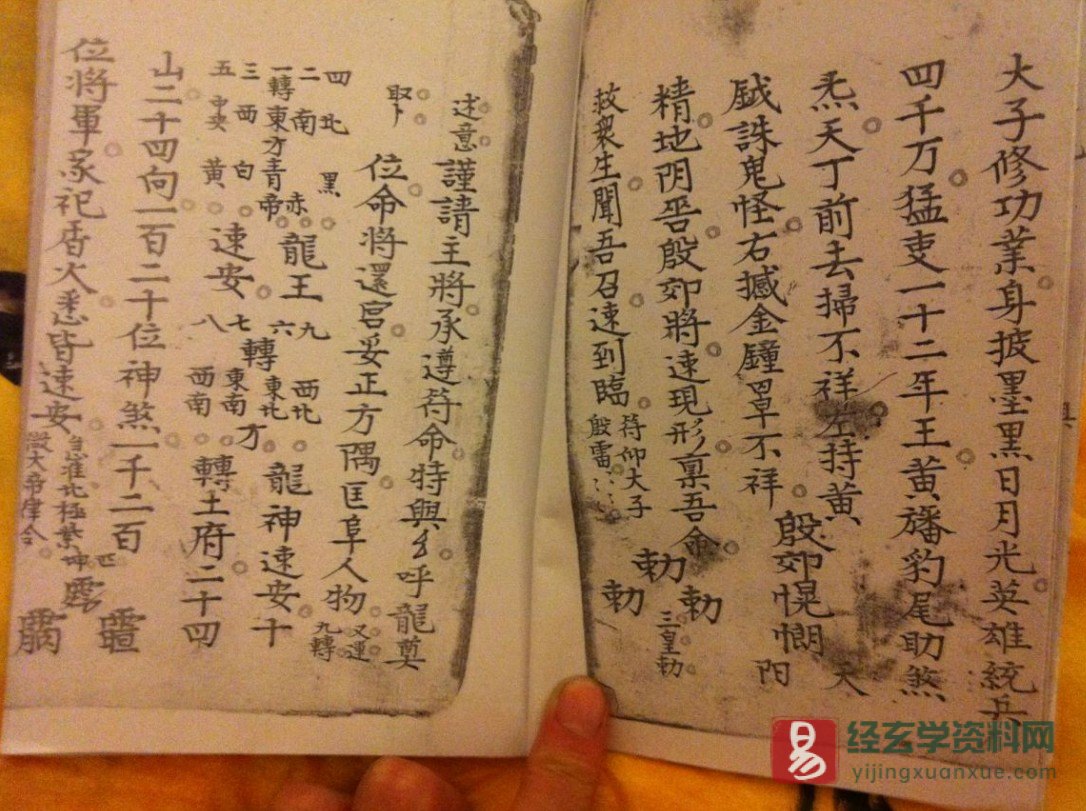 大子修功業身披墨黑日月光英雄統兵
四千万猛吏一十二年王黄旛豹尾助煞
炁天丁前去掃不祥左持黄
鉞誅鬼怪右撼金鐘罩不祥
殷郊愰惘
天
阳
精地阴吾殷郊将速現形稟吾命
救衆生聞吾召速到臨
符仰大子
殷雷
勅
勅
勅
三皇勅
述意
謹請主將承遵符命特與
呼龍奠
取卜
位命將還宮妥正方隅匡阜人物
又運
九轉
四北黑
二南赤
一轉東方青帝
三西白
五中央黄
龍王
速安
九西北
六東北
七東南
八西南
轉
方
龍神速安十
轉土府二十四
山二十四向一百二十位神煞一千二百
位將軍家祀香火悉皆速安
北極紫
微大帝律令